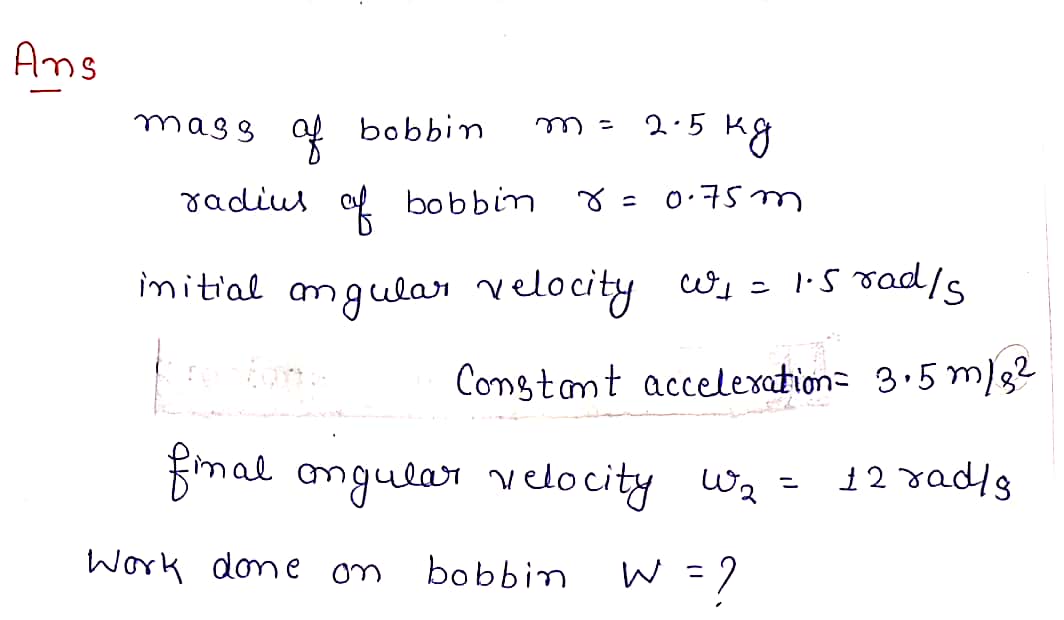 Ans
mass of bobbin m = 2.5 kg
radius of bobbin r = 0.75 m
initial angular velocity ω₁ = 1.5 rad/s
Constant acceleration = 3.5 m/s²
final angular velocity ω₂ = 12 rad/s
Work done on bobbin W = ?